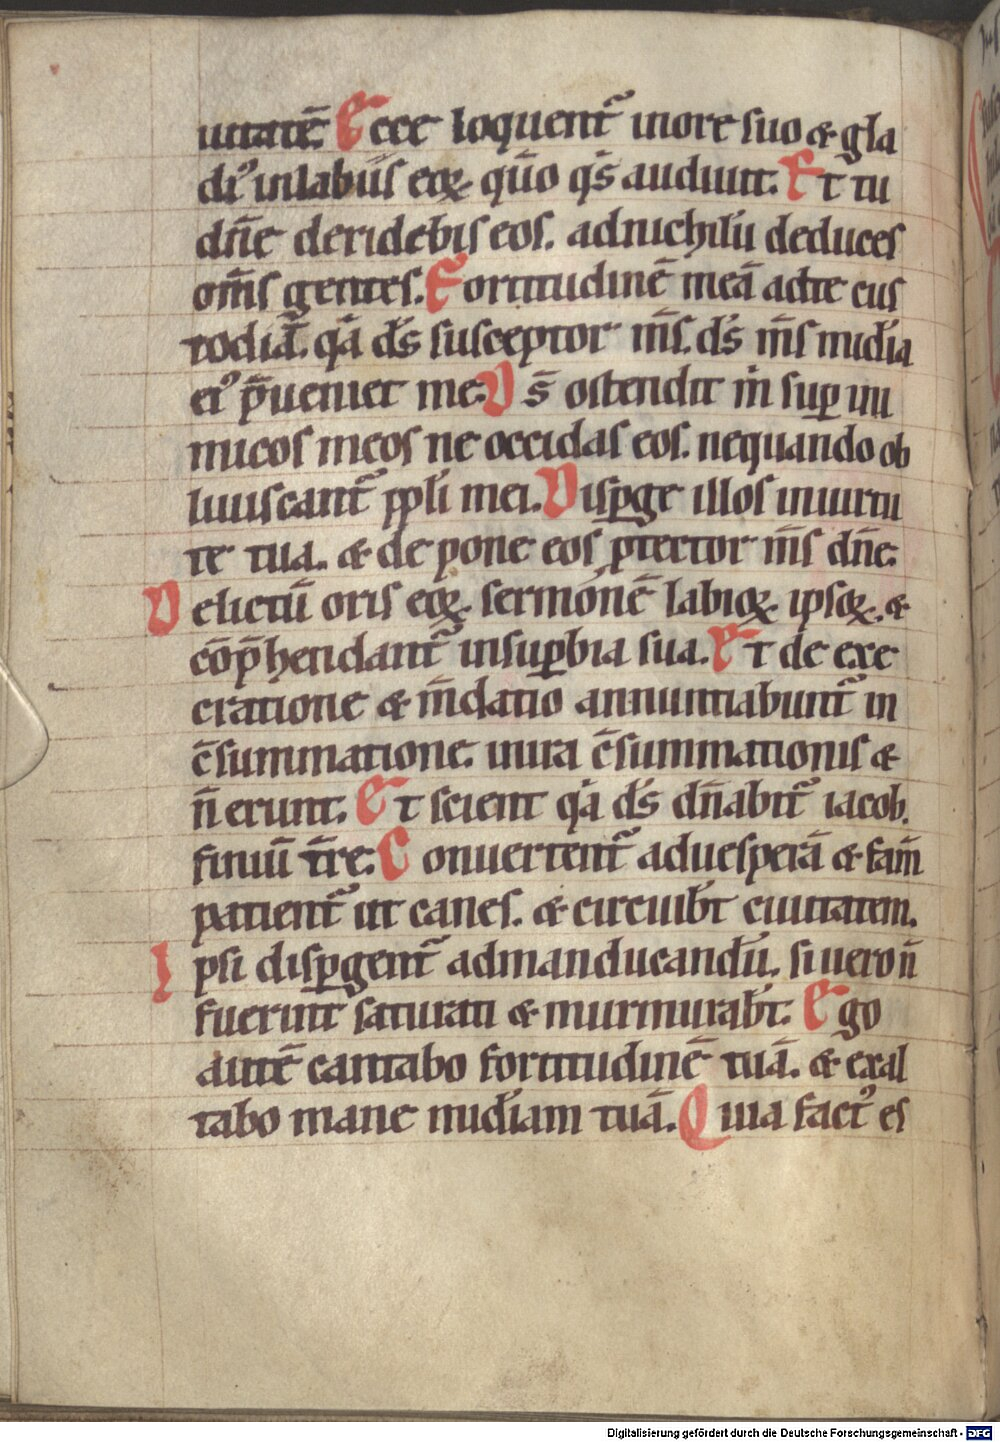 uitatē. Ecce loquent᷑ inore suo & gla
di᷒ inlabiis eoꝝ. qm̄o q͛s audiuit. Et tu
dn̄e deridebis eos. adnichilū deduces
om̄s gentes. Fortitudinē meā adte cus
todiā. q͛a d̄s susceptor m̄s. d̄s m̄s mīdia
ei᷒ p̄ueniet me. D s̄ ostendit m̍ suꝑ ini
micos meos ne occidas eos. nequando ob
liuiscant᷑ ppl̄i mei. Disꝑge illos inuirtu
te tua. & de pone eos ꝓtector m̄s dn̄e.
Delictū oris eoꝝ. sermonē labioꝝ. ipsoꝝ. &
cōp̄hendant᷑ insuꝑbia sua. Et de exe
cratione & m̄datio annuntiabunt᷑ in
c̄summatione. inira c̄summationis &
n̄ erunt. Et scient q͛a d̄s dn̄abit᷑ iacob.
finiū t̄re. Conuertent᷑ aduesperā & fam̄
patient᷑ ut canes. & circuib̄t ciuitatem.
Ipsi disꝑgent᷑ admanducandū. si uero n̄
fuerint saturati & murmurab̄t. Ego
autē cantabo fortitudinē tuā. & exal
tabo mane mīdiam tuā. Quia fact᷒ es
Digitalisierung gefördert durch die Deutsche Forschungsgemeinschaft - DFG